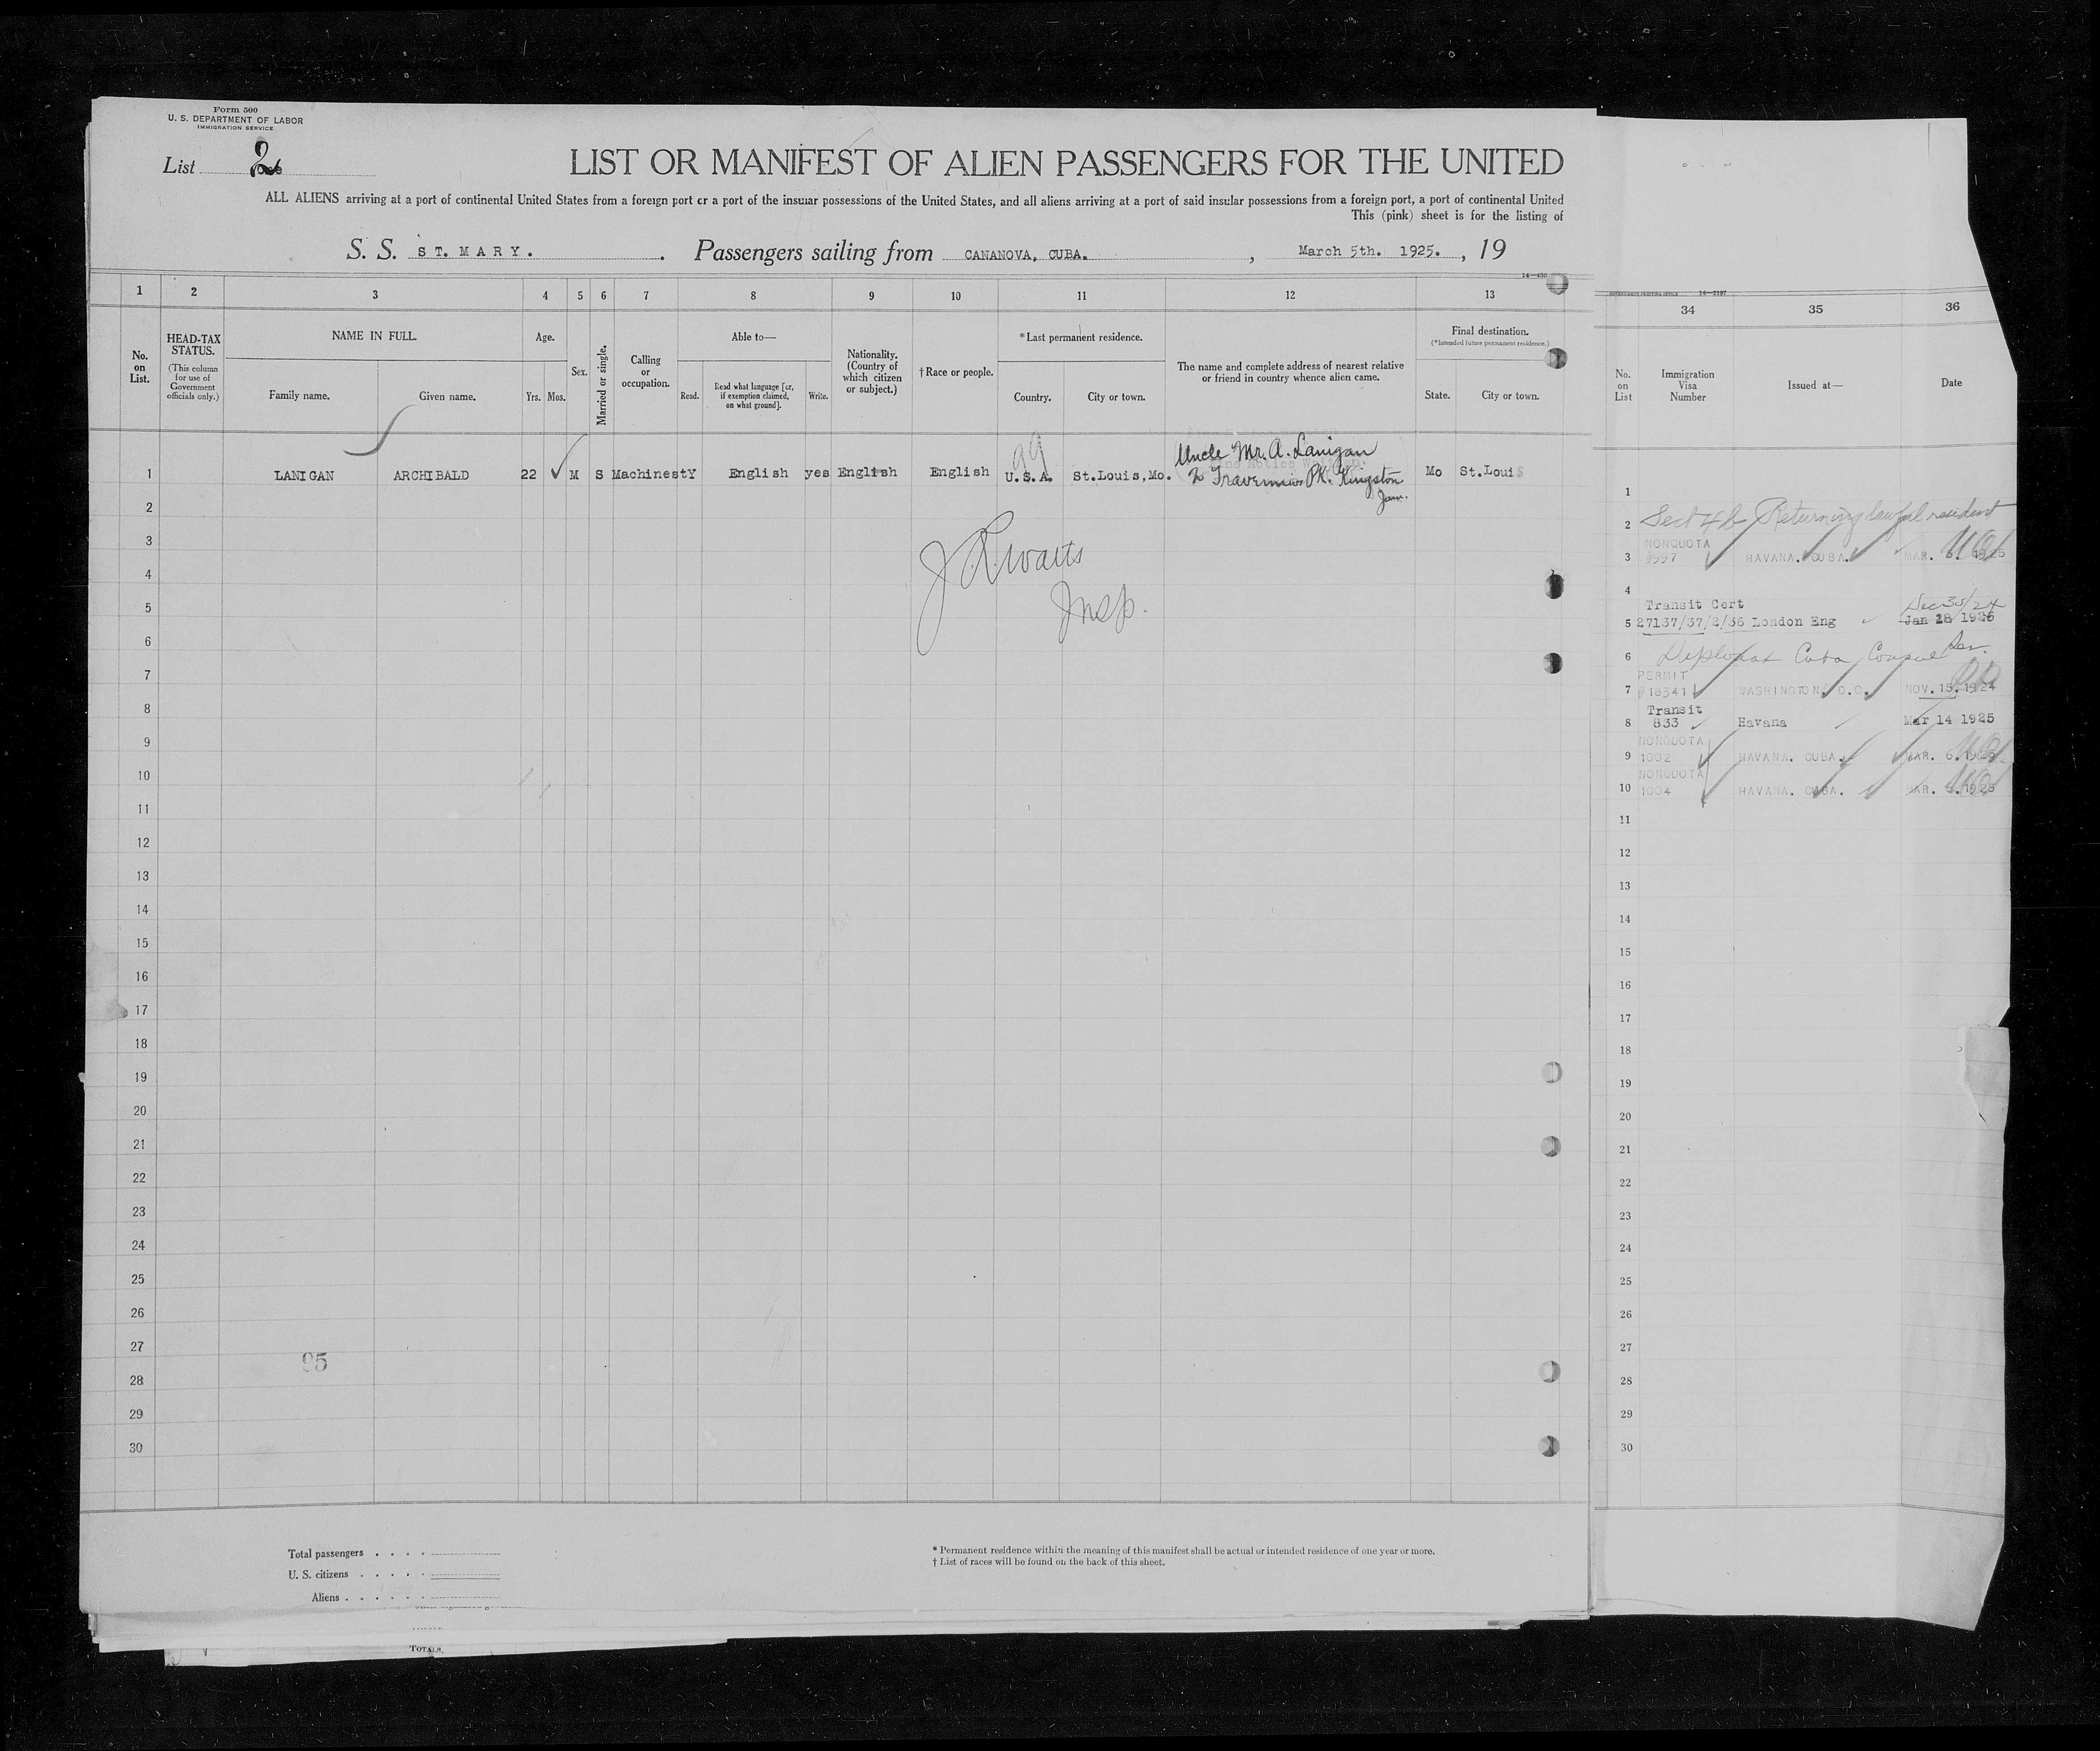 Form 500
U. S. DEPARTMENT OF LABOR
IMMIGRATION SERVICE
List 2
LIST OR MANIFEST OF ALIEN PASSENGERS FOR THE UNITED
ALL ALIENS arriving at a port of continental United States from a foreign port or a port of the insular possessions of the United States, and all aliens arriving at a port of said insular possessions from a foreign port, a port of continental United
This (pink) sheet is for the listing of
S. S. ST. MARY. Passengers sailing from CANANOVA, CUBA. , March 5th. 1925. , 19
1 2 3 4 5 6 7 8 9 10 11 12 13
No. on List.
HEAD-TAX STATUS.
(This column for use of Government officials only.)
NAME IN FULL.
Family name.
Given name.
Age.
Yrs. Mos.
Sex.
Married or single.
Calling or occupation.
Able to—
Read.
Read what language [or, if exemption claimed, on what ground].
Write.
Nationality. (Country of which citizen or subject.)
† Race or people.
* Last permanent residence.
Country.
City or town.
The name and complete address of nearest relative or friend in country whence alien came.
Final destination.
(* Intended future permanent residence.)
State.
City or town.
99
Uncle Mr. A. Lanigan
1 LANIGAN ARCHIBALD 22 M S Machinest Y English yes English English U.S.A. St.Louis,Mo. PK. Kingston Mo St.Louis
Jam.
2
3
4
5
6
7
8
9
10
11
12
13
14
15
16
17
18
19
20
21
22
23
24
25
26
27
28
29
30
Insp.
95
Total passengers
U. S. citizens
Aliens
* Permanent residence within the meaning of this manifest shall be actual or intended residence of one year or more.
† List of races will be found on the back of this sheet.
TOTALS.
34 35 36
No. on List
Immigration Visa Number
Issued at—
Date
1
2 Sect 4b Returning lawful resident
NONQUOTA
3 997 HAVANA. CUBA. MAR. 1925
4
Transit Cert Dec 30/24
5 27137/37/2/36 London Eng Jan 28 1925
6 Diplomat Cuba
PERMIT
7 18341 WASHINGTON, D.C. NOV. 15. 1924
Transit
8 833 Havana Mar 14 1925
NONQUOTA
9 1002 HAVANA. CUBA. MAR. 6. 1925
NONQUOTA
10 1004 HAVANA. CUBA. MAR. 1925
11
12
13
14
15
16
17
18
19
20
21
22
23
24
25
26
27
28
29
30